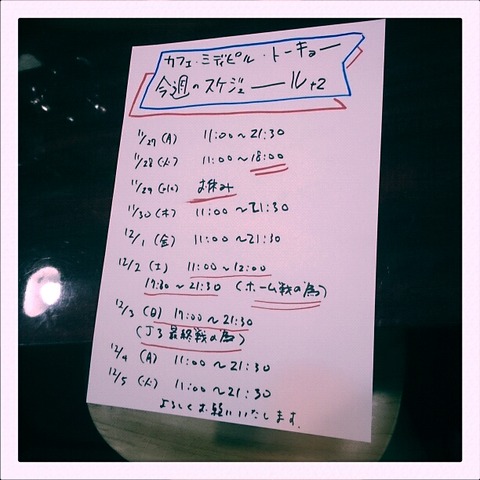 カフェ・ミディピル・トーキョー
今週のスケジュール+2
11/27 (月) 11:00~21:30
11/28 (火) 11:00~18:00
11/29 (水) お休み
11/30 (木) 11:00~21:30
12/1 (金) 11:00~21:30
12/2 (土) 11:00~12:00
17:30~21:30 (ホーム戦の為)
12/3 (日) 17:00~21:30
(J3最終戦の為)
12/4 (月) 11:00~21:30
12/5 (火) 11:00~21:30
よろしくお願いいたします。